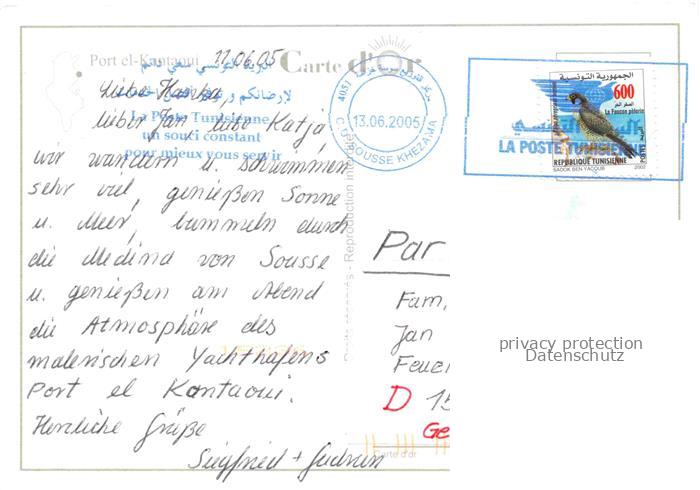 Port el-Kantaoui 11.06.05
Carte d'Or
البريد التونسي سعي دائم
لإرضائكم
Liebe Hanka,
La Poste Tunisienne
lieber Jan, liebe Katja,
un souci constant
pour mieux vous servir
wir wandern u. schwimmen
sehr viel, genießen Sonne
u. Meer, bummeln durch
die Medina von Sousse
u. genießen am Abend
die Atmosphäre des
malerischen Yachthafens
Port el Kantaoui.
Herzliche Grüße
Siegfried + Gudrun
4051
13.06.2005
C.D SOUSSE KHEZAMA
الجمهورية التونسية
600
Le Faucon pèlerin
البريد التونسي
LA POSTE TUNISIENNE
REPUBLIQUE TUNISIENNE
SADOK BEN YACOUB 2002
Droits réservés - Reproduction
Par
Fam.
Jan
Feuer
D 15
Ge
Carte d'or
privacy protection
Datenschutz